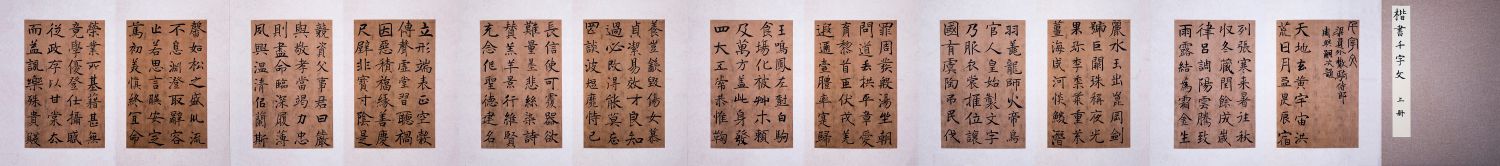 楷書千字文 上冊
千字文
梁員外散騎侍郎
周興嗣次韻
天地玄黃宇宙洪
荒日月盈昃辰宿
列張寒來暑往秋
收冬藏閏餘成歲
律呂調陽雲騰致
雨露結為霜金生
麗水玉出崑岡劍
號巨闕珠稱夜光
果珍李柰菜重芥
薑海鹹河淡鱗潛
羽翔龍師火帝鳥
官人皇始製文字
乃服衣裳推位讓
國有虞陶弔民伐
罪周發殷湯坐朝
問道垂拱平章愛
育黎首臣伏戎羌
遐邇壹體率賓歸
王鳴鳳在樹白駒
食場化被草木賴
及萬方蓋此身髮
四大五常恭惟鞠
養豈敢毀傷女慕
貞潔男效才良知
過必改得能莫忘
罔談彼短靡恃己
長信使可覆器欲
難量墨悲絲染詩
讚羔羊景行維賢
克念作聖德建名
立形端表正空谷
傳聲虛堂習聽禍
因惡積福緣善慶
尺璧非寶寸陰是
競資父事君曰嚴
與敬孝當竭力忠
則盡命臨深履薄
夙興溫凊似蘭斯
馨如松之盛川流
不息淵澄取辭容
止若思言暎安定
篤初美慎終宜令
榮業所基藉甚無
竟學優登仕攝職
從政存以甘棠去
而益詠樂殊貴賤